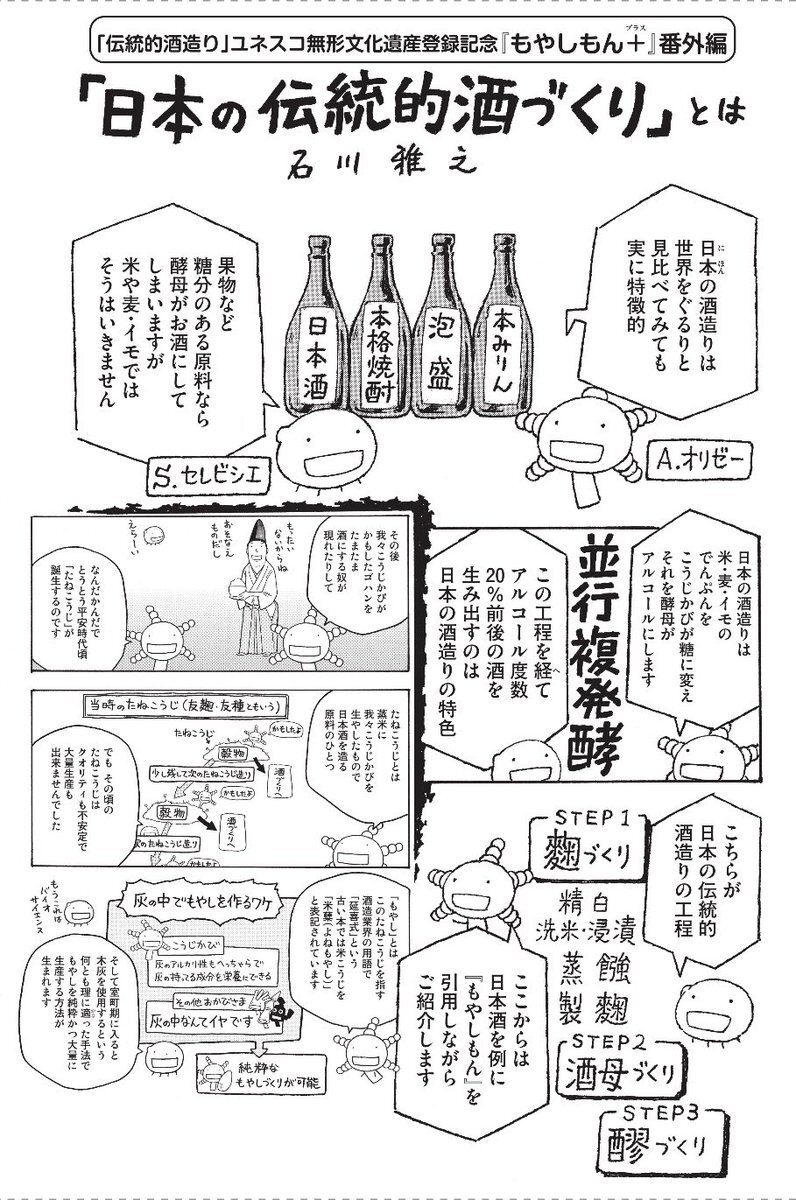 「伝統的酒造り」ユネスコ無形文化遺産登録記念『もやしもん＋』番外編
プラス
「日本の伝統的酒づくり」とは
石川雅之
日本の酒造りは
にほん
世界をぐるりと
見比べてみても
実に特徴的
A.オリゼー
本みりん
泡盛
本格焼酎
日本酒
果物など
糖分のある原料なら
酵母がお酒にして
しまいますが
米や麦・イモでは
そうはいきません
S.セレビシエ
日本の酒造りは
米・麦・イモの
でんぷんを
こうじかびが糖に変え
それを酵母が
アルコールにします
並行複発酵
この工程を経て
へ
アルコール度数
20％前後の酒を
生み出すのは
日本の酒造りの特色
こちらが
日本の伝統的
酒造りの工程
STEP1
麴づくり
精白
洗米・浸漬
蒸𩝐
製麴
STEP2
酒母づくり
STEP3
醪づくり
ここからは
日本酒を例に
『もやしもん』を
引用しながら
ご紹介します
その後
我々こうじかびが
かもしたゴハンを
たまたま
酒にする奴が
現れたりして
もったい
ないからね
おそなえ
ものだし
えらーい
なんだかんだで
とうとう平安時代頃
「たねこうじ」が
誕生するのです
たねこうじとは
蒸米に
我々こうじかびを
生やしたもので
日本酒を造る
原料のひとつ
当時のたねこうじ（友麴・友種ともいう）
たねこうじ
かもしたよ
穀物
酒づくりへ
少し残して次のたねこうじ造り
かもしたよ
穀物
酒づくりへ
次のたねこうじ造り
かもしたよ
でも その頃の
たねこうじは
クオリティも不安定で
大量生産も
出来ませんでした
「もやし」とは
このたねこうじを指す
酒造業界の用語で
「延喜式」という
古い本では米こうじを
「米糵（よねもやし）」
と表記されています
灰の中でもやしを作るワケ
こうじかび
灰のアルカリ性もへっちゃらで
灰の持ってる成分を栄養にできる
その他おかびさま
灰の中なんてイヤです
純粋な
もやしづくりが可能
もうこれは
バイオ
サイエンス
そして室町期に入ると
木灰を使用するという
何とも理に適った手法で
もやしを純粋かつ大量に
生産する方法が
生まれます